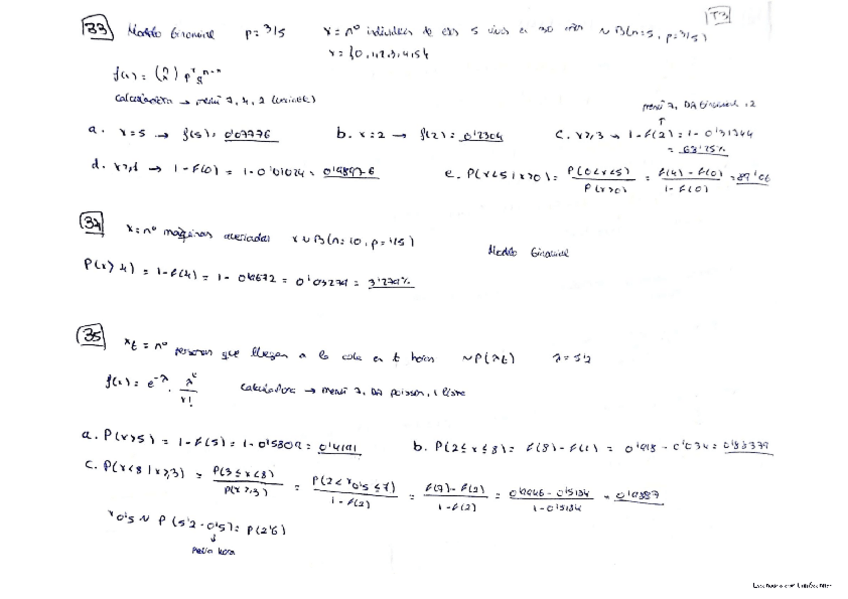 T3
33 Modelo Binomial p = 3/5 x = nº individuos de esos 5 vivos en 30 años ~ B(n=5, p=3/5)
x = {0,1,2,3,4,5}
f(x) = (n x) p^x q^n-x
calculadora → menú 7, 4, 2 (variable)
menú 7, DA Binomial, 2
a. x=5 → f(5) = 0'07776 b. x=2 → f(2) = 0'2304 c. x≥3 → 1-F(2) = 1-0'31744
= 68'25%
d. x≥1 → 1-F(0) = 1-0'01024 = 0'98976 e. P(x<5 | x>0) = P(0<x<5) / P(x>0) = F(4) - F(0) / 1-F(0) = 89'06
34 x = nº máquinas averiadas x ~ B(n=10, p=1/5) Modelo Binomial
P(x>4) = 1-F(4) = 1 - 0'9672 = 0'03279 = 3'279%
35 xt = nº personas que llegan a la cola en t horas ~P(λt) λ = 5'2
f(x) = e^-λ · λ^x / x! calculadora → menú 7, DA poisson, 1 lista
a. P(x>5) = 1-F(5) = 1-0'5809 = 0'4191 b. P(2≤x≤8) = F(8) - F(1) = 0'918 - 0'034 = 0'88379
c. P(x<8 | x≥3) = P(3≤x<8) / P(x≥3) = P(2<x0'5≤7) / 1-F(2) = F(7)-F(2) / 1-F(2) = 0'9946 - 0'5184 / 1-0'5184 = 0'9887
x0'5 ~ P(5'2·0'5) = P(2'6)
media hora